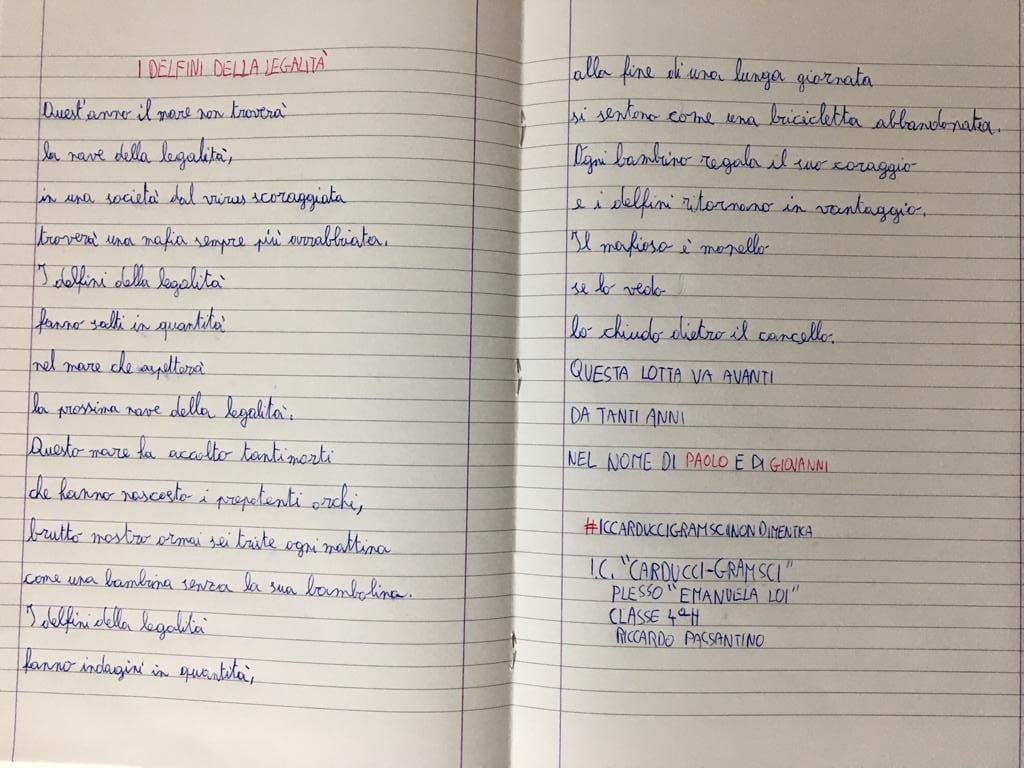 I DELFINI DELLA LEGALITÀ
Quest'anno il mare non troverà
la nave della legalità,
in una società dal virus scoraggiata
troverà una mafia sempre più arrabbiata.
I delfini della legalità
fanno salti in quantità
nel mare che aspetterà
la prossima nave della legalità.
Questo mare ha accolto tanti morti
che hanno nascosto i prepotenti orchi,
brutto mostro ormai sei triste ogni mattina
come una bambina senza la sua bambolina.
I delfini della legalità
fanno indagini in quantità,
alla fine di una lunga giornata
si sentono come una bricicletta abbandonata.
Ogni bambino regala il suo coraggio
e i delfini ritornano in vantaggio.
Il mafioso è monello
se lo vedo
lo chiudo dietro il cancello.
QUESTA LOTTA VA AVANTI
DA TANTI ANNI
NEL NOME DI PAOLO E DI GIOVANNI
#ICCARDUCCIGRAMSCINONDIMENTICA
I.C. "CARDUCCI-GRAMSCI"
PLESSO "EMANUELA LOI"
CLASSE 4ªH
RICCARDO PASSANTINO